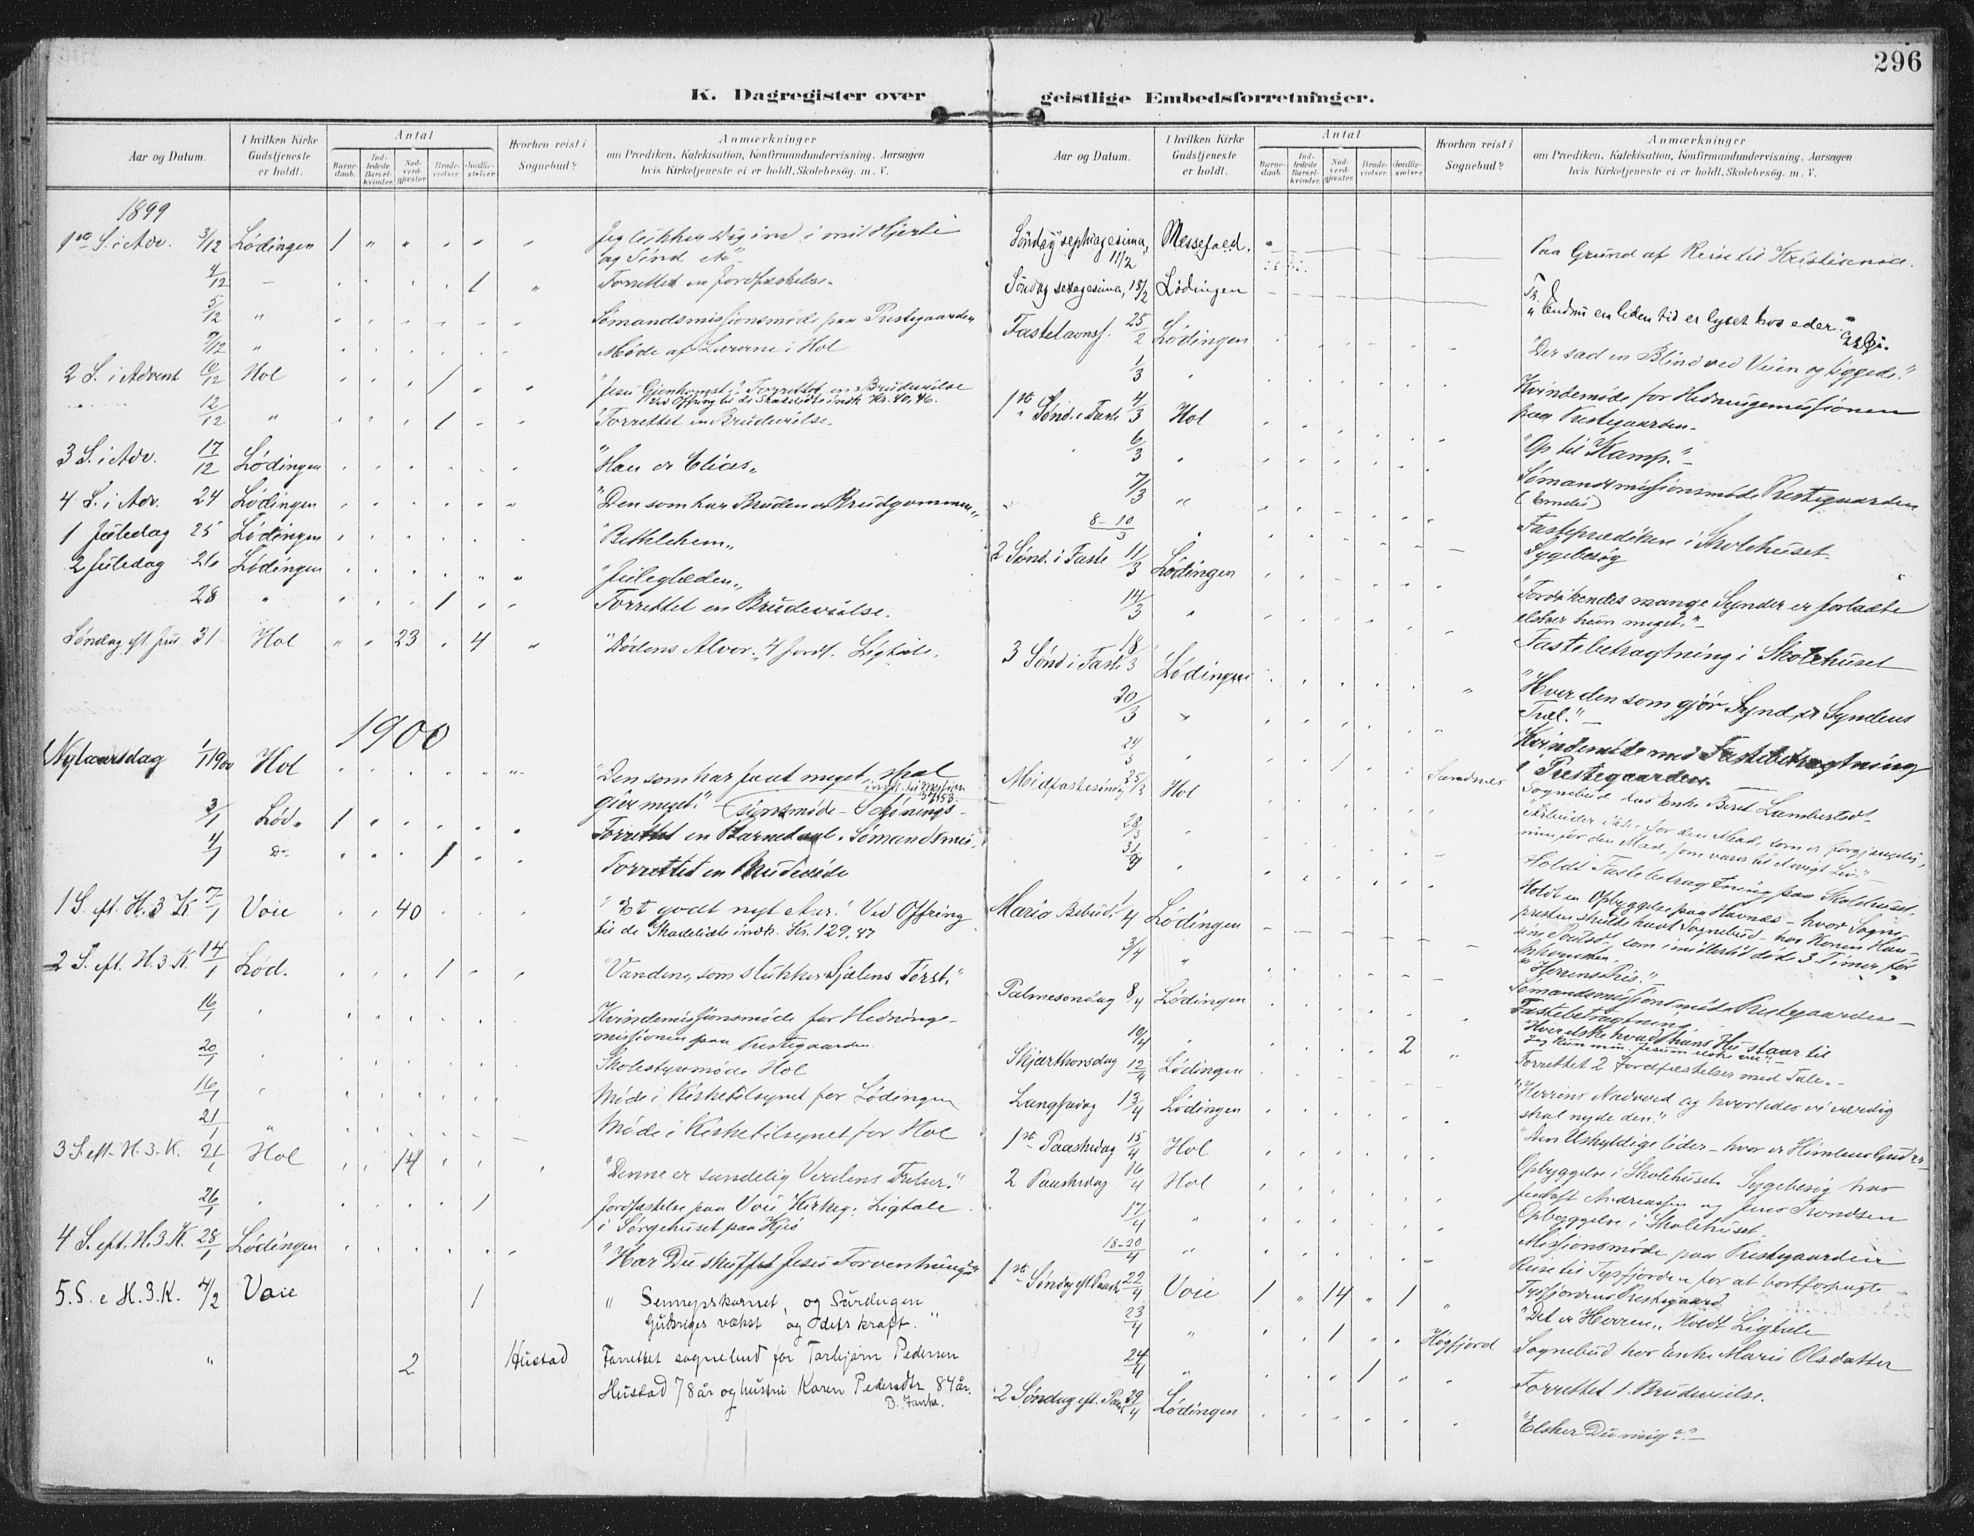 296
K. Dagregister over
geistlige Embedsforretninger.
Aar og Datum.
I hvilken Kirke Gudstjeneste er holdt.
Antal
Barnedaab.
Indledede Barselkvinder.
Nadverdgjester.
Brudevielser.
Jordfæstelser.
Hvorhen reist i Sognebud?
Anmærkninger
om Prædiken, Katekisation, Konfirmandundervisning, Aarsagen
hvis Kirketjeneste ei er holdt, Skolebesøg, m. V.
1899
1ste S. i Adv. 3/12 Lødingen 1 Jeg lukker Dig ind i mit Hjerte
og Sind
4/12 1 Forrettet en Jordfæstelse.
5/12 " Sømandsmissionsmøde paa Prestegaarden
9/12 " Møde af Lærerne i Hol
2 S. i Advent 10/12 Hol 1 "Jesu Gjenkomst". Forrettet en Brudevielse
Ved Offring til de Skadelidte indk. Kr. 40,46.
12/12 " 1 Forrettet en Brudevielse.
3 S. i Adv. 17/12 Lødingen "Han er Elias"
4 S. i Adv. 24 Lødingen "Den som har Bruden er Brudgommen"
1 Juledag 25 Lødingen "Bethlehem"
2 Juledag 26 Lødingen "Juleglæden"
28 " 1 Forrettet en Brudevielse.
Søndag eft. Jul 31 Hol 23 4 "Dødens Alvor" 4 Jordf. Ligtale.
1900
Nytaarsdag 1/1 1900 Hol "Den som har faaet meget, skal
give meget."
3/1 Lød. 1 Forrettet en Barnedaab. Sømandsmis-
4/1 Do 1 Forrettet en Brudevielse
1 S. eft. H. 3 K. 7/1 Voie 40 "Et godt nyt Aar." Ved Offring
til de Skadelidte indk. Kr. 129,47
2 S. eft. H. 3. K. 14/1 Lød. 1 "Vandene, som slukker Sjælens Tørst."
16/1 Kvindemissionsmøde for Hedninge-
missionen paa Prestegaarden.
20/1 Skolestyremøde Hol
16/1 Møde i Kirketilsynet for Lødingen
21/1 Møde i Kirketilsynet for Hol
3 S. eft. H. 3. K. 21/1 Hol 14 "Denne er sandelig Verdens Frelser."
26/1 1 Jordfæstelse paa Voie Kirkeg. Ligtale
i Sørgehuset paa Kjeø
4 S. eft. H. 3. K. 28/1 Lødingen "Har Du skuffet Jesu Forventning?"
5. S. e H. 3. K. 4/2 Voie 1 " Sennepskornet, og Surdeigen
Gudsriges vækst og dets kraft. "
" 2 Hustad Forrettet sognebud for Torbjørn Pedersen
Hustad 78 år og hustru Karen Pedersdtr 84 år.
Søndag septuagesima, 11/2 Messefald. Paa Grund af Reise til
Søndag sexagesima, 18/2 Lødingen "Endnu en liden tid er lyset hos eder."
Fastelavnss. 25/2 Lødingen "Der sad en Blind ved Veien og tiggede."
1/3 Kvindemøde for Hedningemissionen
paa Prestegaarden.
1ste Sønd. i Faste 4/3 Hol "Op til Kamp."
6/3 " Sømandsmissionsmøde Prestegaarden
7/3 " Fasteprædiken i Skolehuset.
8-10/3 Sygebesøg
2 Sønd. i Faste 11/3 Lødingen "Fordi hendes mange Synder er forladte
elsker hun meget."
14/3 " Fastebetragtning i Skolehuset
3 Sønd i Faste 18/3 Lødingen "Hver den som gjør Synd, er Syndens
Træl."
20/3 " Kvindemøde med Fastebetragtning
i Prestegaarden.
24/3 1 Sandnes Sognebud hos Enke Berit Lambertsdt.
Midfastesøndag 25/3 Hol "Arbeider ikke for den Mad, som er forgjængelig,
men for den Mad, som varer til et evigt Liv."
28/3 " Holdt Fastebetragtning paa Skolehuset.
31/3 " Holdt en Opbyggelse paa Havnes - hvor Sogne-
presten skulde havt Sognebud
Maria Bebud. 1/4 Lødingen "Herrens Pris."
3/4 " Sømandsmissionsmøde Prestegaarden
Fastebetragtning
Palmesøndag 8/4 Lødingen
10/4 " 2 Forrettet 2 Jordfæstelser med Tale.
Skjærthorsdag 12/4 Lødingen "Herrens Nadverd og hvorledes vi værdig
skal nyde den."
Langfredag 13/4 Lødingen "Den Uskyldige lider - hvor er Himlens Gud?"
1ste Paaskedag 15/4 Hol
2 Paaskedag 16/4 Hol Opbyggelse i Skolehuset. Sygebesøg hos
Andreassen og Jens Trondsen
17/4 " Opbyggelse i Skolehuset.
Missionsmøde paa Prestegaarden
18-20/4 " Reise til Tysfjorden for at bortforpagte
Tysfjordens Prestegaard
1ste Søndag eft. Paaske 22/4 Voie 1 " 14 " 1 "Det er Herren" Holdt Ligtale
23/4 " 1 Høgfjord Sognebud hos Enke Maris Olsdatter
24/4 " 1 Forrettet 1. Brudevielse.
2 Søndag eft. Paaske 29/4 Lødingen "Elsker Du mig?"